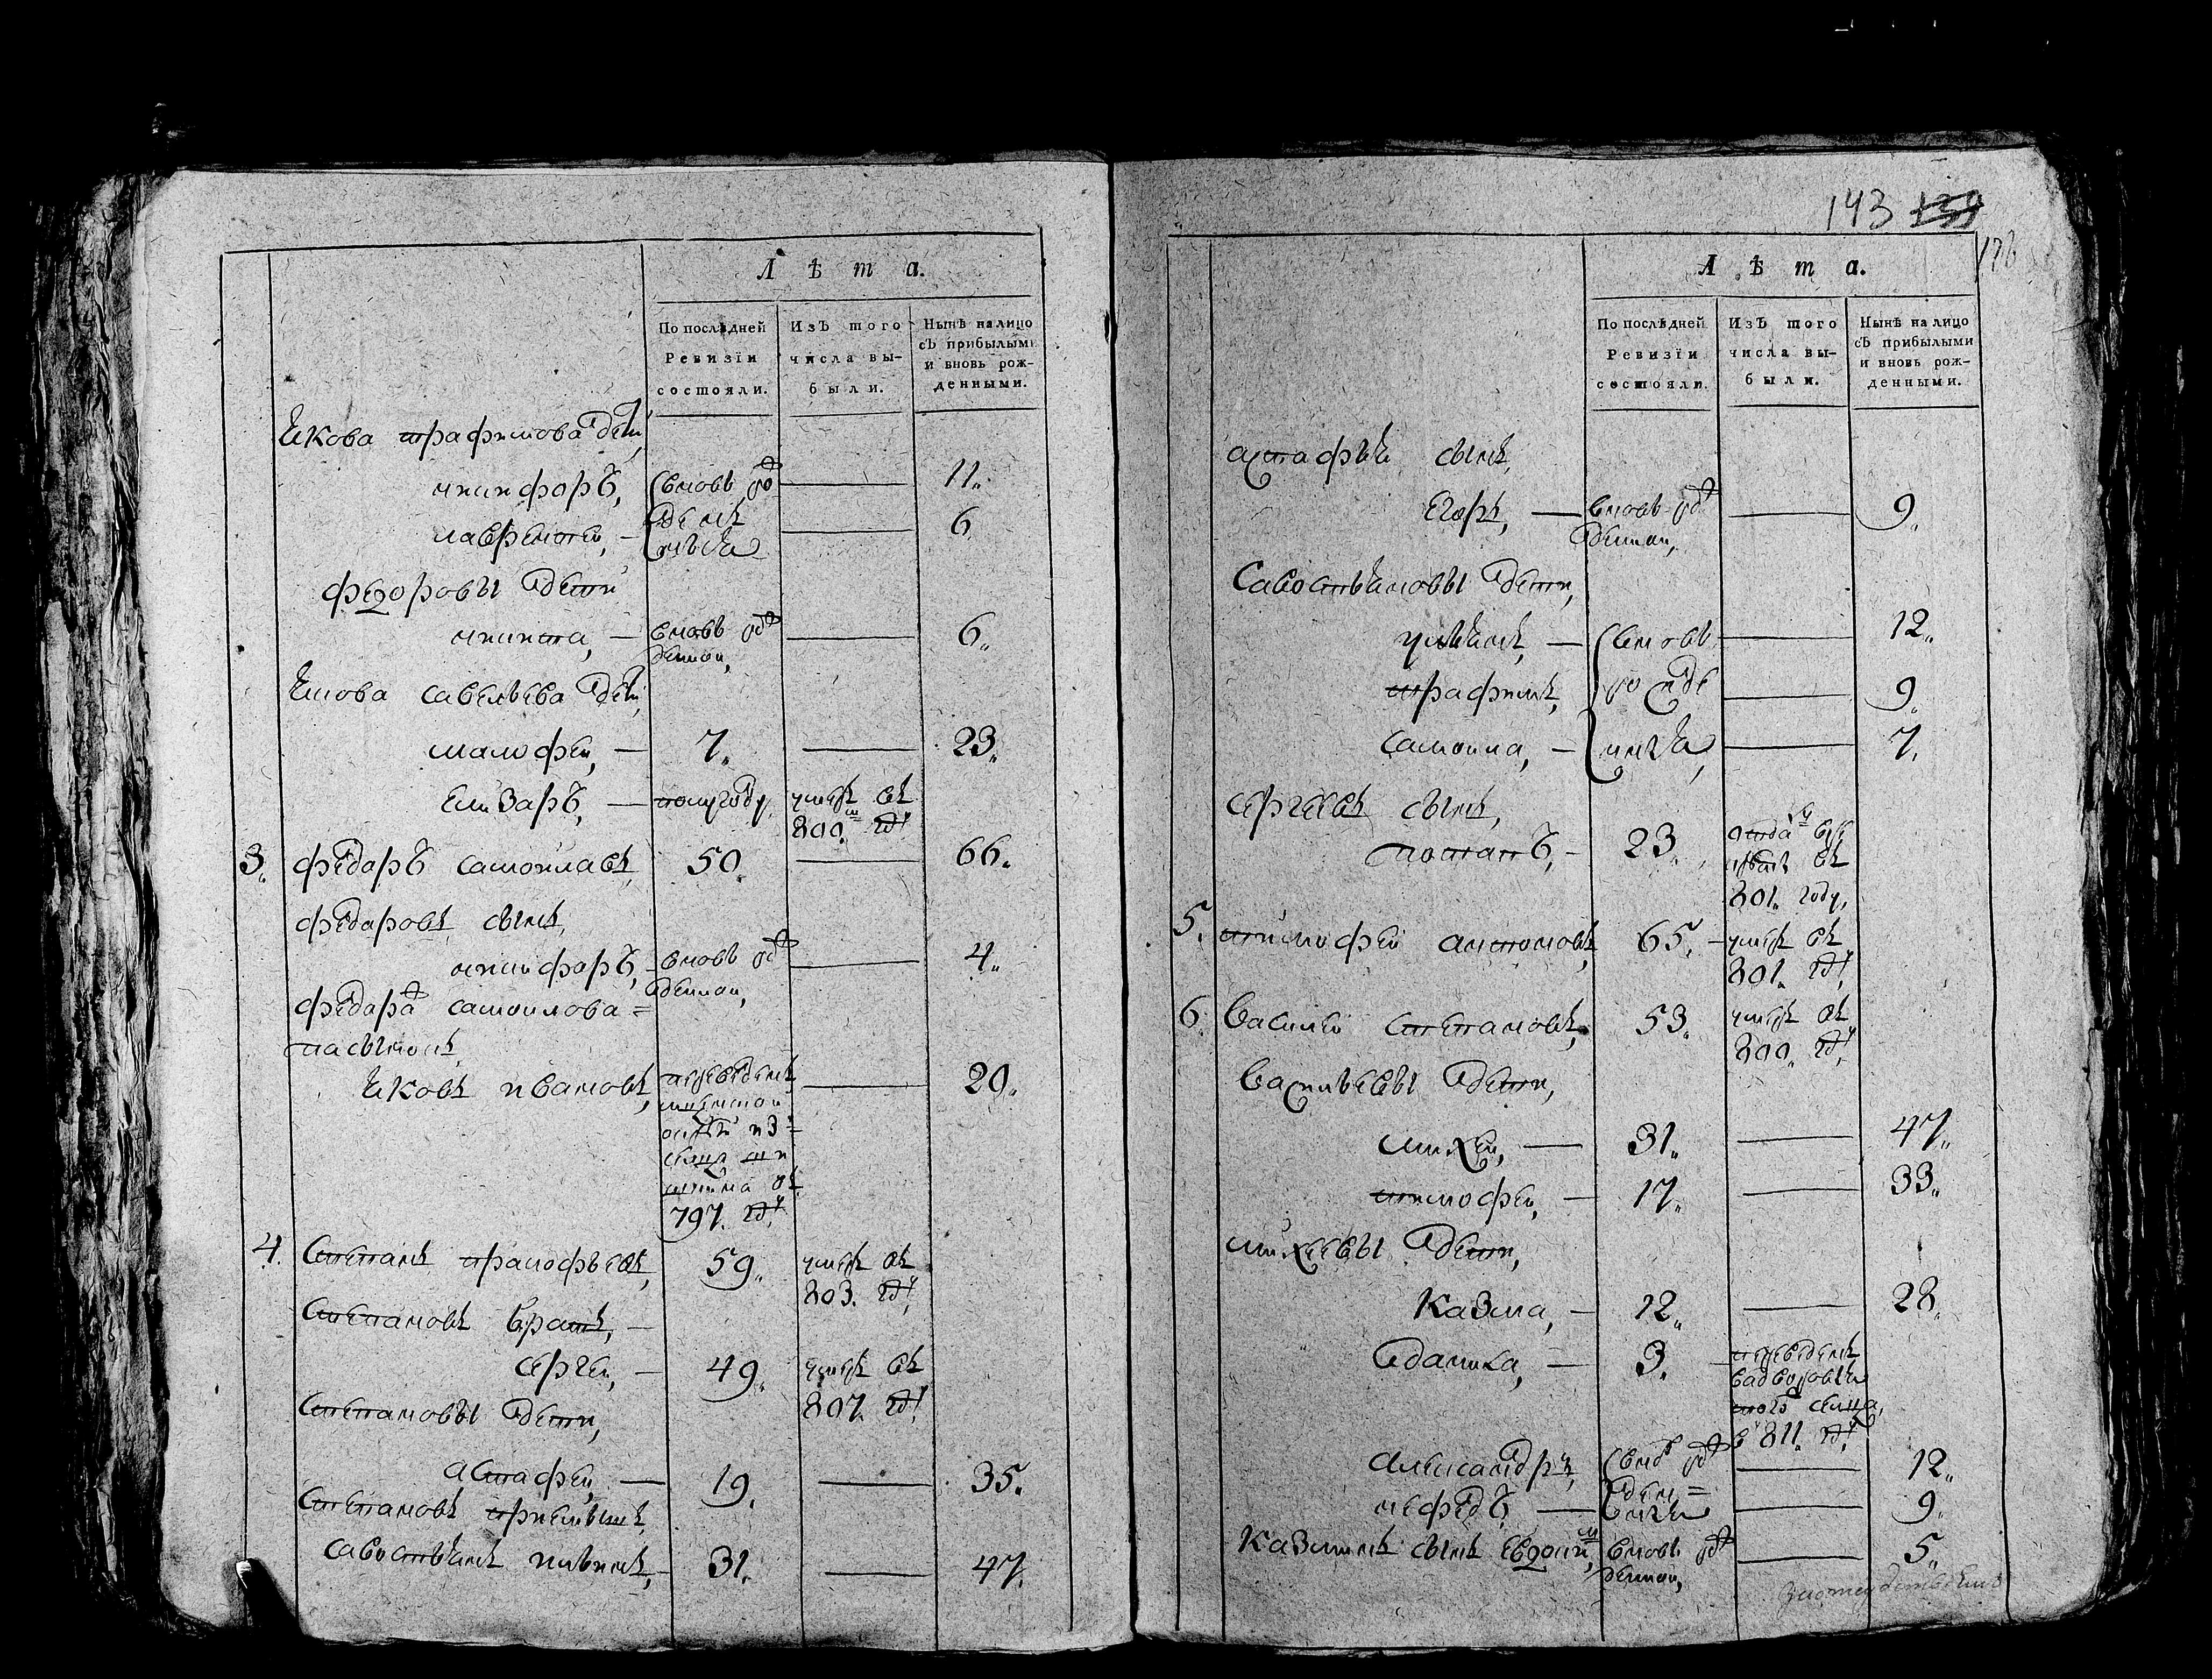 Лѣта.
По послѣдней Ревизїи состояли.
Изъ того числа выбыли.
Нынѣ на лицо съ прибылыми и вновь рожденными.
Якова трафимова дети
никифоръ, вновь ро — 11.
лаврентеи, — 6.
федоровы дети
никита, — вновь рож денной, — 6.
савельева дети
малофеи, — 7. — 23.
елизаръ, — полугоду, умеръ въ
800. году
3. федаръ самоилавъ, 50. — 66.
федаровъ сынъ,
никифоръ, — вновь рож денной, — 4.
федара самоилова
пасынокъ,
Яковъ ивановъ, переведенъ — 29.
797. году
4. Степанъ трапофьевъ, 59. умеръ въ
803. году
Степановъ братъ, —
сергеи, — 49. умеръ въ
807. году
Степановы дети,
астафеи, — 19. — 35.
Степановъ приемышъ,
савостьянъ 31. — 47.
143 139
Лѣта.
По послѣдней Ревизїи состояли.
Изъ того числа выбыли.
Нынѣ на лицо съ прибылыми и вновь рожденными.
астафья сынъ,
егоръ, — вновь рож денной, — 9.
Савостьяновы дети,
ульянъ, — вновь — 12.
трафимъ, — 9.
самоила, — 7.
сергеевъ сынъ,
потапъ, — 23. отдан въ рекруты въ
801. году,
5. тимофеи антоновъ, 65. — умеръ въ
801. году
6. Василеи степановъ, 53. умеръ въ
800. году
Васильевы дети,
михеи, — 31. — 47.
тимофеи, — 17. — 33.
михеевы дети,
Казма, — 12. — 28.
данила, — 3. — переведенъ
в 811. году
александръ, — 12.
нефедъ, — 9.
Казминъ сынъ евдоким, вновь рож денной, — 5.